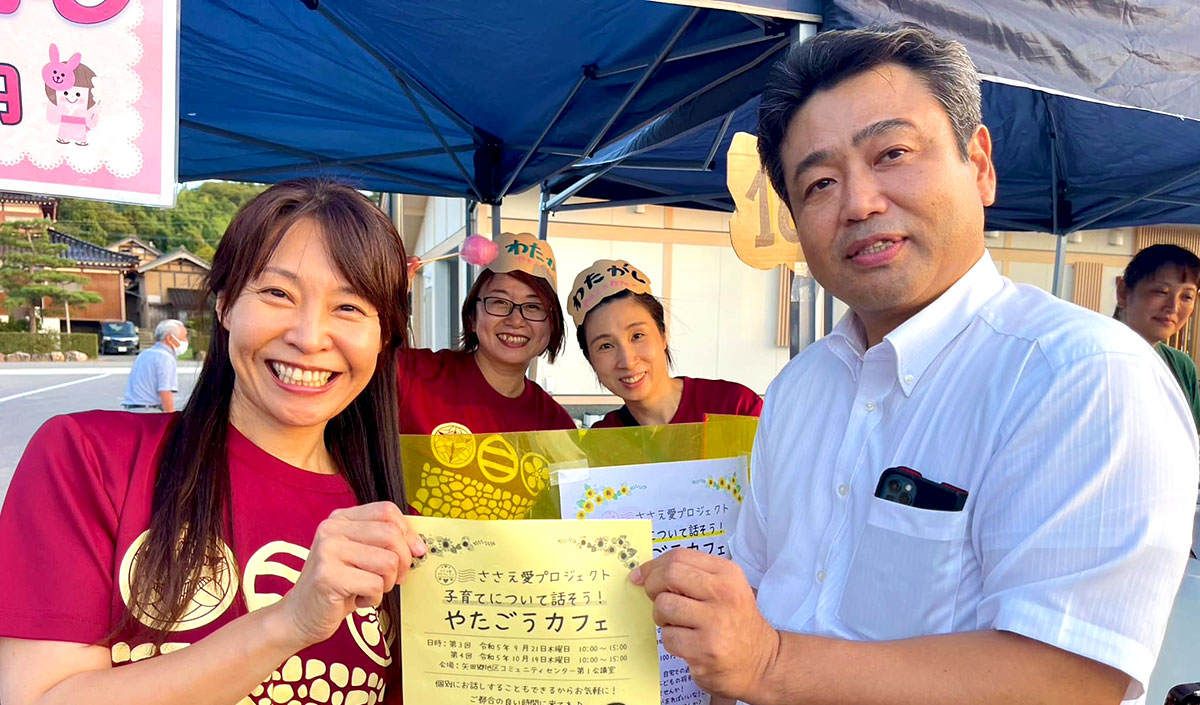 円
わたが
わたがし
10
ささえ愛プロジェクト
子育てについて話そう!
やたごうカフェ
日時:第3回 令和5年9月21日木曜日 10:00〜15:00
第4回 令和5年10月19日木曜日 10:00〜15:00
会場:矢田郷地区コミュニティセンター第1会議室
個別にお話しすることもできるからお気軽に!
ご都合の良い時間に来てね♪
ささえ愛プロジェクト
について話そう!
うカフェ